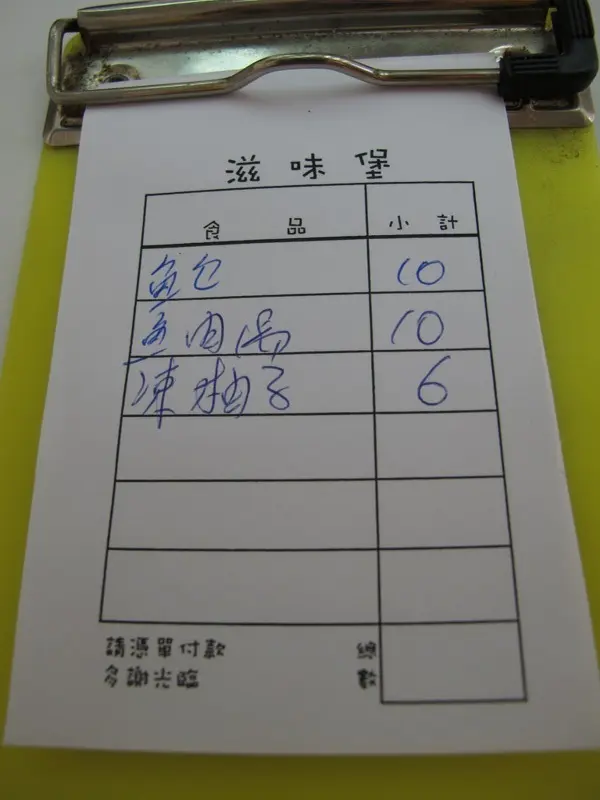 滋味堡
食品 小計
魚包 10
魚肉湯 10
凍柚子 6
請憑單付款
多謝光臨
總數